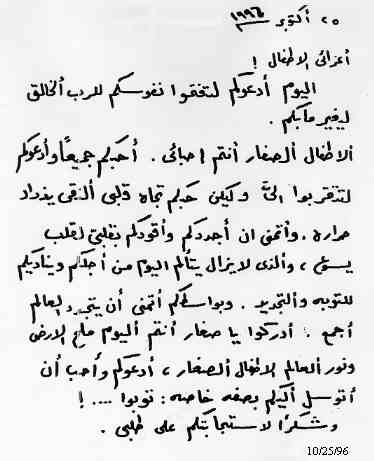 ٢٥ أكتوبر ١٩٩٦
أعزائى الاطفال !
اليوم أدعوكم لتفتحوا نفوسكم للرب الخالق
ليغير مابكم .
الاطفال الصغار أنتم احبائى . أحبكم جميعًا وأدعوكم
لتتقربوا الىَّ ولكن حبكم تجاه قلبى النقى يزداد
حراره . وأتمنى ان أجددكم وأقودكم بقلبى لقلب
يسوع ، والذى لايزال يتألم اليوم من أجلكم ويناديكم
للتوبه والتجديد . وبواسطتكم أتمنى أن يتجدد العالم
أجمع . أدركوا يا صغار أنتم اليوم ملح الارض
ونور العالم الاطفال الصغار ، أدعوكم وأحب أن
أتوسل اليكم بصفه خاصه : توبوا .... !
وشكرًا لاستجابتكم على طلبى .
10/25/96